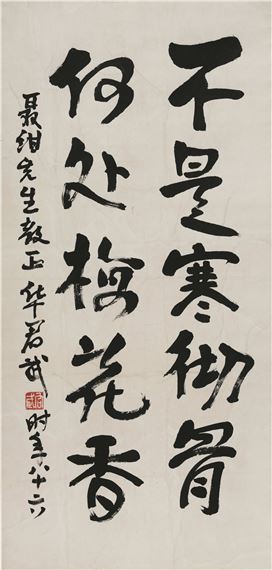 不是寒彻骨
何处梅花香
聂绀先生教正 华君武 时年八十六